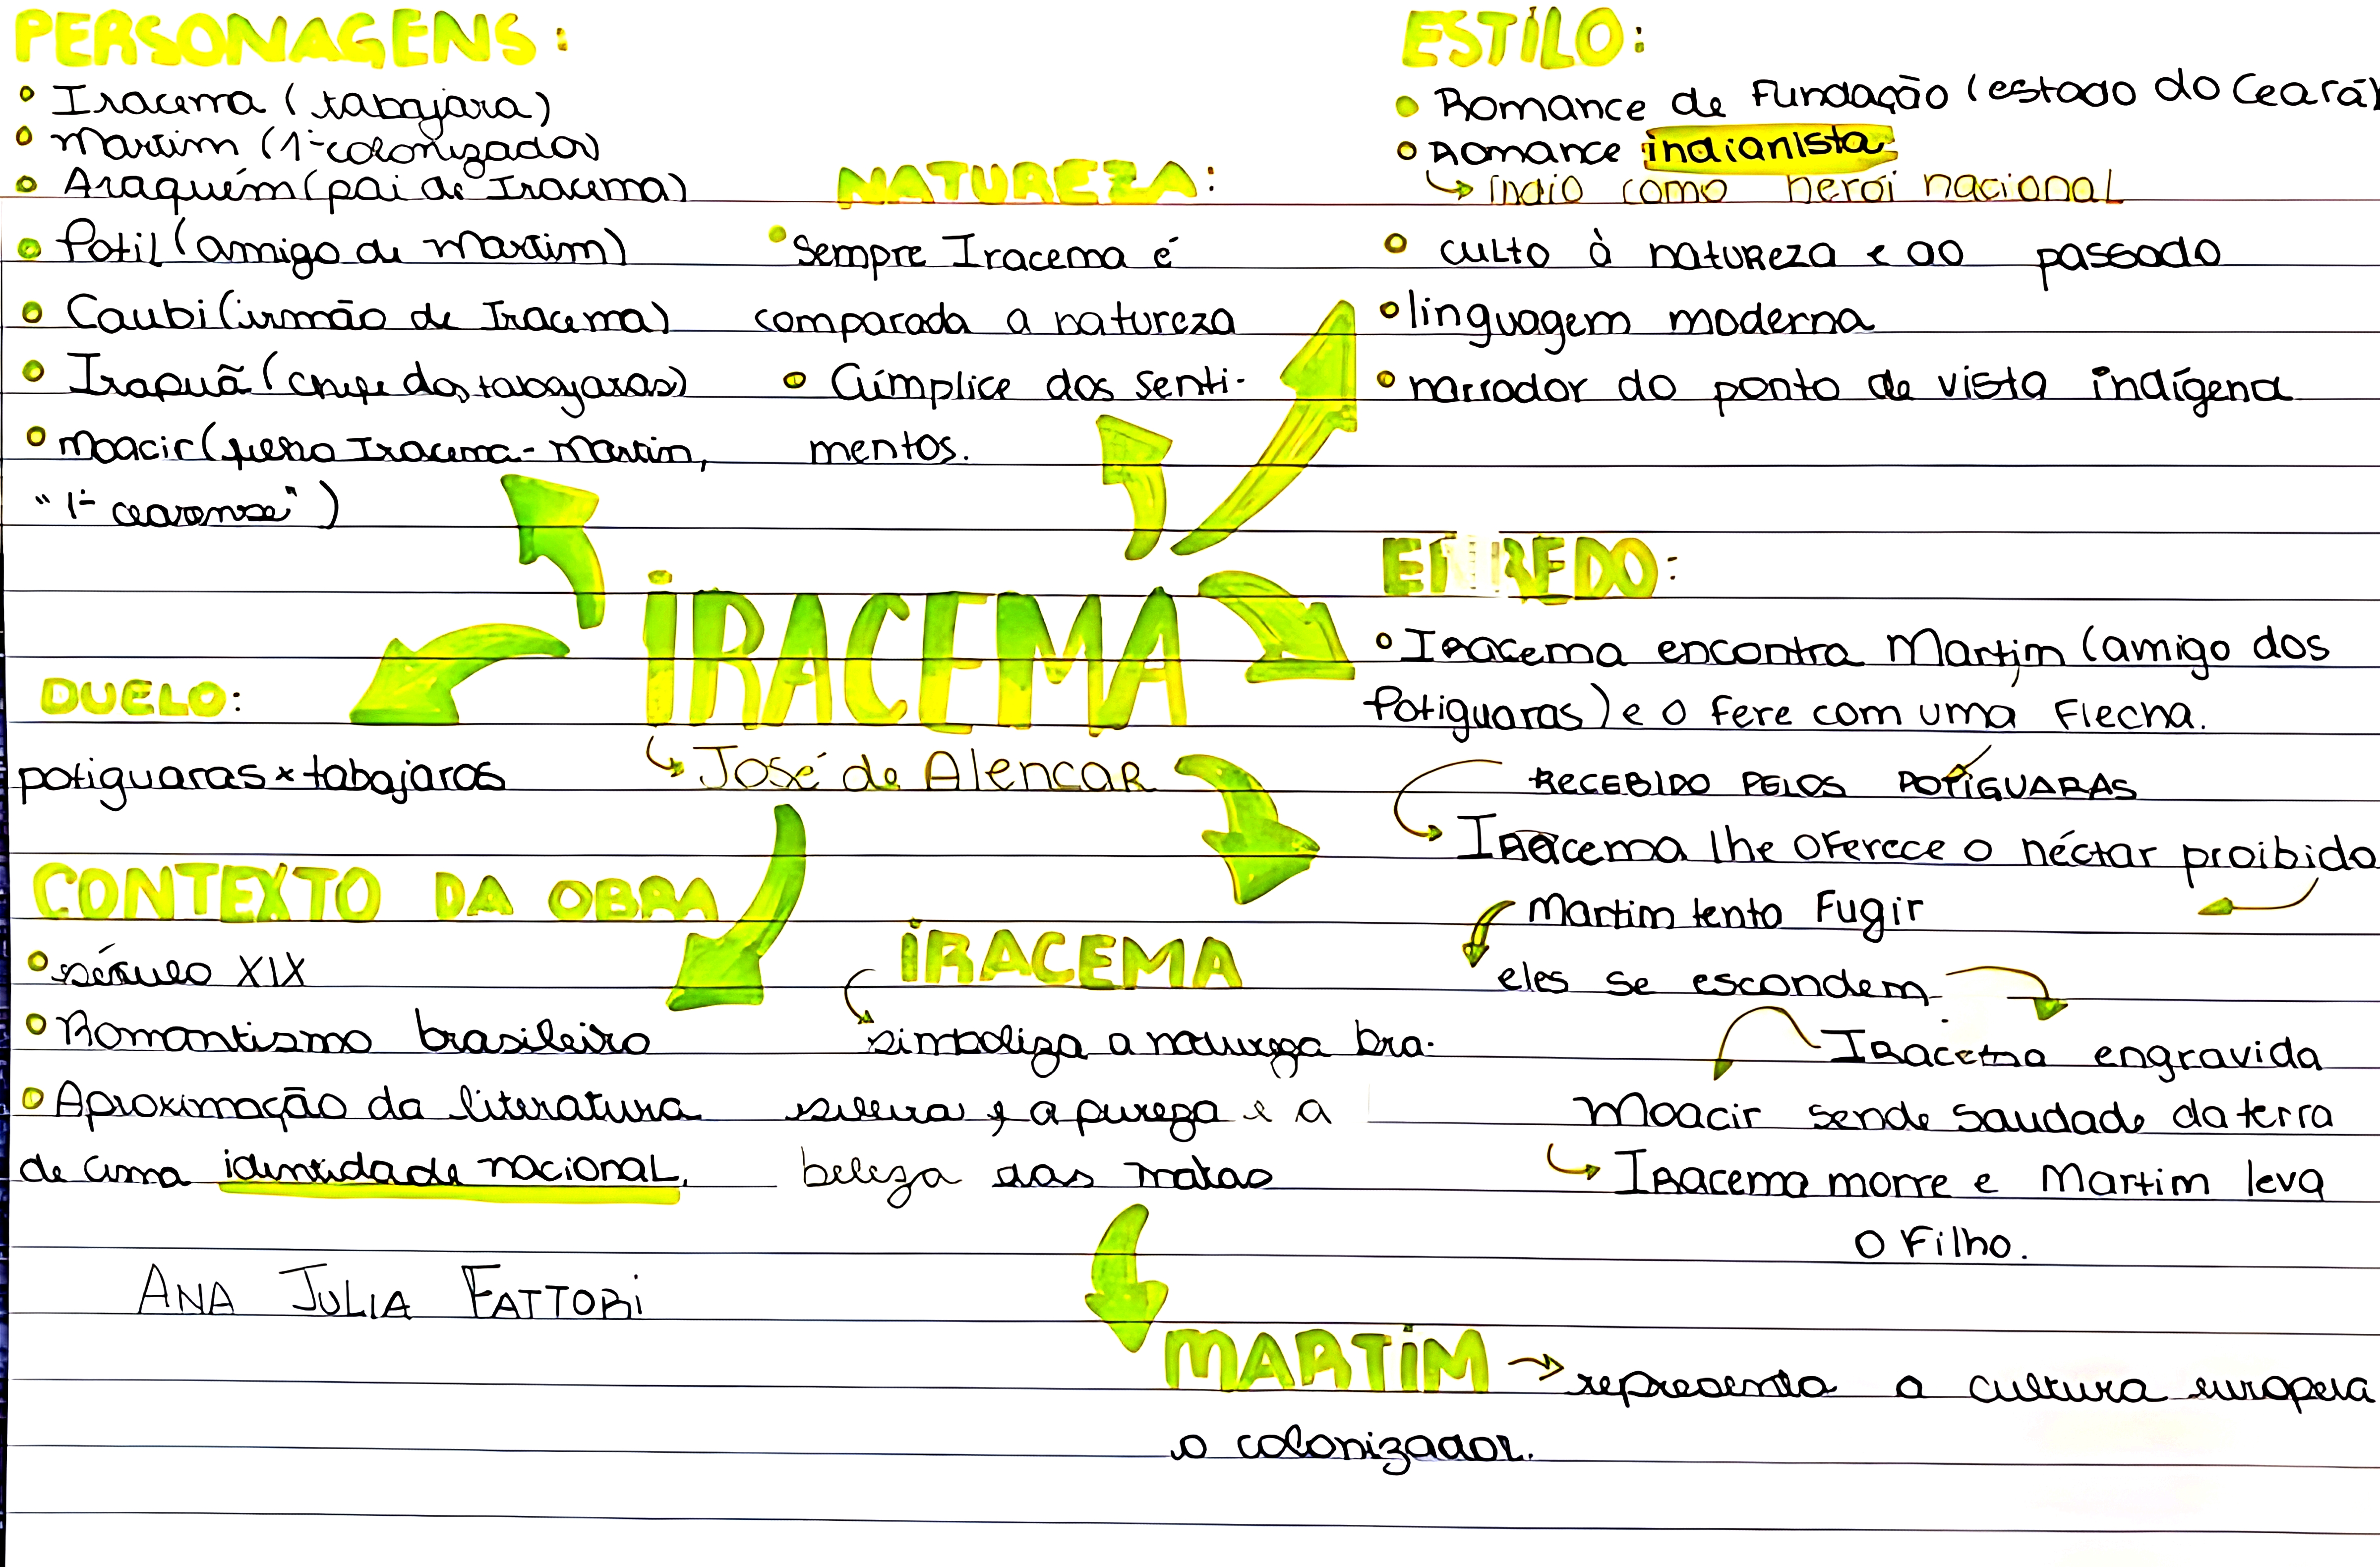 PERSONAGENS:
• Iracema (tabajara)
• Martim (1º colonizador)
• Araquém (pai de Iracema)
• Potil (amigo de Martim)
• Caubi (irmão de Iracema)
• Irapuã (chefe dos tabajaras)
• Moacir (filho Iracema - Martim,
"1º cearense")
NATUREZA:
• Sempre Iracema é
comparada a natureza
• Cúmplice dos senti-
mentos.
ESTILO:
• Romance de Fundação (estado do Ceará)
• Romance indianista
índio como herói nacional
• culto à natureza e ao passado
• linguagem moderna
• narrador do ponto de vista indígena
IRACEMA
José de Alencar
DUELO:
potiguaras x tabajaras
ENREDO:
• Iracema encontra Martim (amigo dos
Potiguaras) e o fere com uma Flecha.
RECEBIDO PELOS POTIGUARAS
Iracema lhe oferece o néctar proibido
Martim tenta Fugir
eles se escondem
Iracema engravida
Moacir sende saudade da terra
Iracema morre e Martim leva
o Filho.
CONTEXTO DA OBRA
• século XIX
• Romantismo brasileiro
• Aproximação da literatura
de uma identidade nacional.
IRACEMA
simboliza a natureza bra-
sileira, a pureza e a
beleza das matas
ANA JULIA FATTORI
MARTIM
representa a cultura europeia
o colonizador.